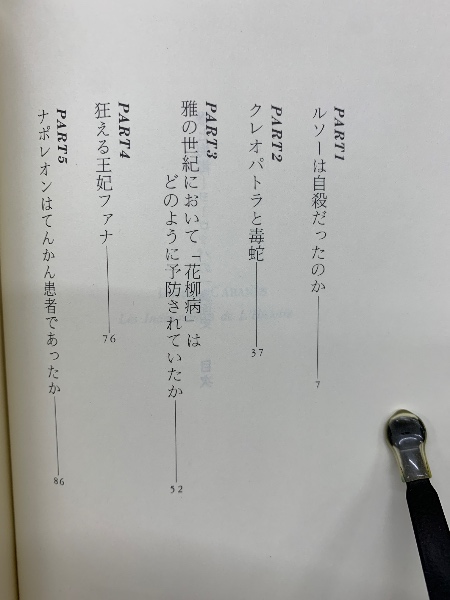 PART1
ルソーは自殺だったのか
7
PART2
クレオパトラと毒蛇
37
PART3
雅の世紀において「花柳病」は
どのように予防されていたか
52
PART4
狂える王妃ファナ
76
PART5
ナポレオンはてんかん患者であったか
86
目次